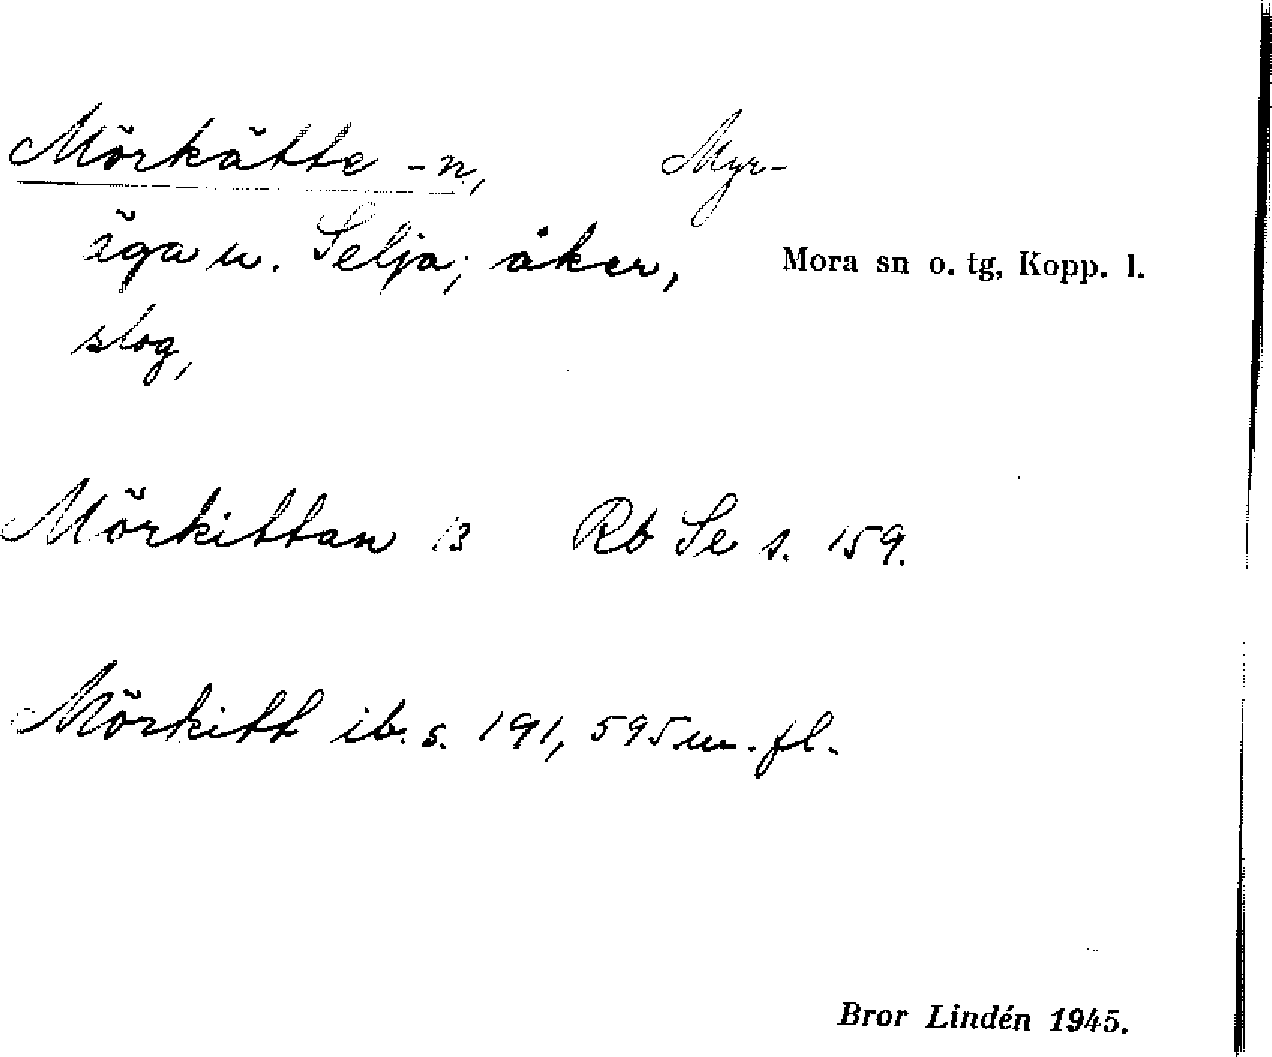 Mörkätte -n, Myr-
äga u. Selja; åker, Mora sn o. tg, Kopp. l.
slog,
Mörkittan B Rb Se s. 159.
Mörkitt ib. s. 191, 595 m. fl.
Bror Lindén 1945.